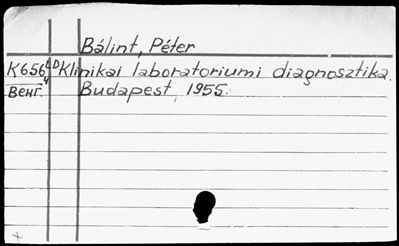 Bálint, Péter
K656 LD Klinikai laboratoriumi diagnosztika.
Венг. 4 Budapest, 1955.